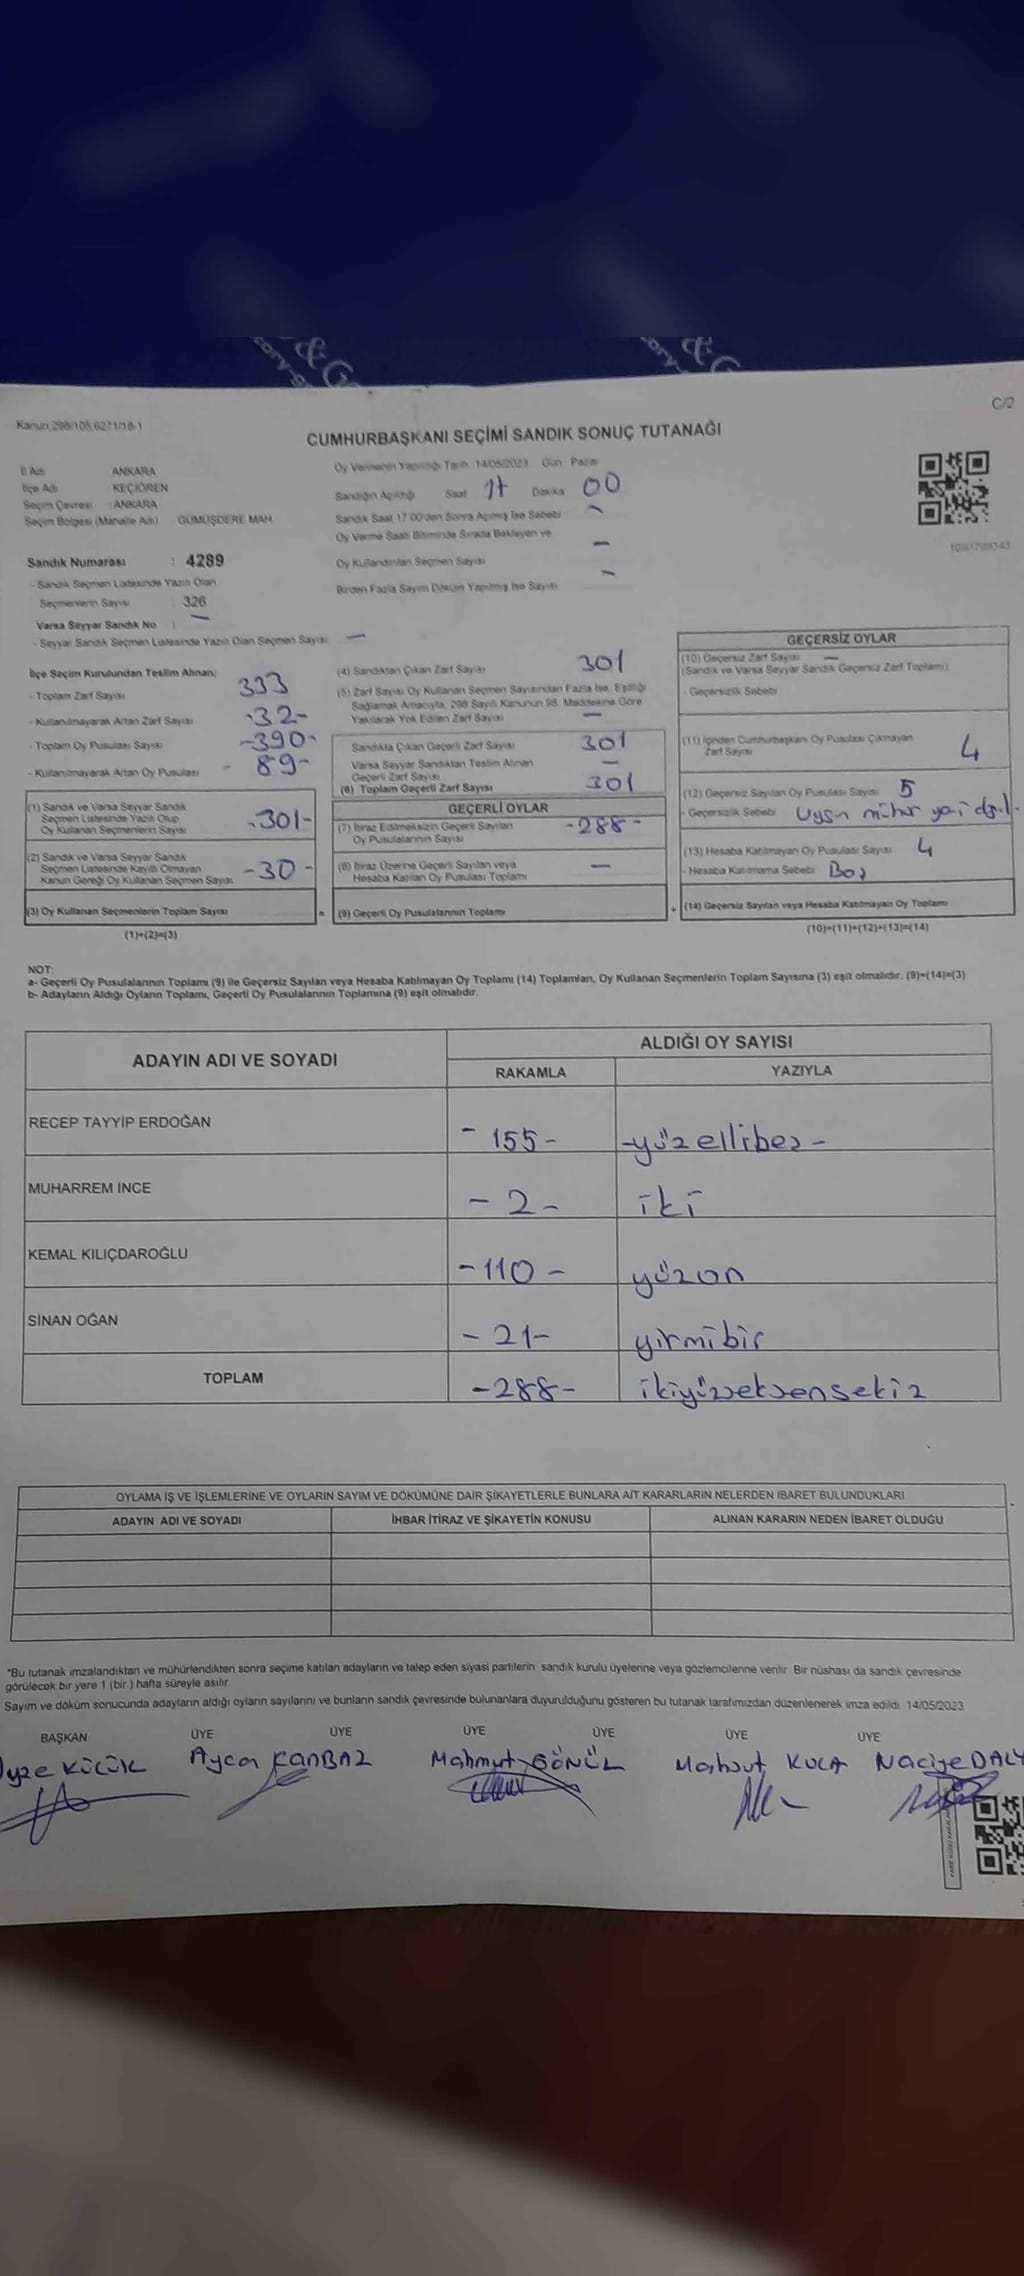 C/2
Kanun:298/105,6271/18-1
CUMHURBAŞKANI SEÇİMİ SANDIK SONUÇ TUTANAĞI
İl Adı ANKARA
İlçe Adı KEÇİÖREN
Seçim Çevresi : ANKARA
Seçim Bölgesi (Mahalle Adı) GÜMÜŞDERE MAH.
Oy Vermenin Yapıldığı Tarih 14/05/2023 Gün Pazar
Sandığın Açıldığı Saat 17 Dakika 00
Sandık Saat 17:00'den Sonra Açılmış İse Sebebi -
Oy Verme Saati Bitiminde Sırada Bekleyen ve
Oy Kullandırılan Seçmen Sayısı -
Birden Fazla Sayım Döküm Yapılmış İse Sayısı -
Sandık Numarası : 4289
- Sandık Seçmen Listesinde Yazılı Olan
Seçmenlerin Sayısı : 326
Varsa Seyyar Sandık No : -
- Seyyar Sandık Seçmen Listesinde Yazılı Olan Seçmen Sayısı -
İlçe Seçim Kurulundan Teslim Alınan;
- Toplam Zarf Sayısı 333
- Kullanılmayarak Artan Zarf Sayısı -32-
- Toplam Oy Pusulası Sayısı -390-
- Kullanılmayarak Artan Oy Pusulası - 89-
(1) Sandık ve Varsa Seyyar Sandık
Seçmen Listesinde Yazılı Olup
Oy Kullanan Seçmenlerin Sayısı -301-
(2) Sandık ve Varsa Seyyar Sandık
Seçmen Listesinde Kayıtlı Olmayan
Kanun Gereği Oy Kullanan Seçmen Sayısı -30-
(3) Oy Kullanan Seçmenlerin Toplam Sayısı
(1)+(2)=(3)
=
(4) Sandıktan Çıkan Zarf Sayısı 301
(5) Zarf Sayısı Oy Kullanan Seçmen Sayısından Fazla İse, Eşitliği
Sağlamak Amacıyla, 298 Sayılı Kanunun 98. Maddesine Göre
Yakılarak Yok Edilen Zarf Sayısı -
Sandıkta Çıkan Geçerli Zarf Sayısı 301
Varsa Seyyar Sandıktan Teslim Alınan
Geçerli Zarf Sayısı -
(6) Toplam Geçerli Zarf Sayısı 301
GEÇERLİ OYLAR
(7) İtiraz Edilmeksizin Geçerli Sayılan
Oy Pusulalarının Sayısı -288-
(8) İtiraz Üzerine Geçerli Sayılan veya
Hesaba Katılan Oy Pusulası Toplamı -
(9) Geçerli Oy Pusulalarının Toplamı
+
GEÇERSİZ OYLAR
(10) Geçersiz Zarf Sayısı -
(Sandık ve Varsa Seyyar Sandık Geçersiz Zarf Toplamı)
- Geçersizlik Sebebi
(11) İçinden Cumhurbaşkanı Oy Pusulası Çıkmayan
Zarf Sayısı 4
(12) Geçersiz Sayılan Oy Pusulası Sayısı 5
- Geçersizlik Sebebi Uygun mühür yeri değil.
(13) Hesaba Katılmayan Oy Pusulası Sayısı 4
- Hesaba Katılmama Sebebi Boş
(14) Geçersiz Sayılan veya Hesaba Katılmayan Oy Toplamı
(10)+(11)+(12)+(13)=(14)
NOT:
a- Geçerli Oy Pusulalarının Toplamı (9) ile Geçersiz Sayılan veya Hesaba Katılmayan Oy Toplamı (14) Toplamları, Oy Kullanan Seçmenlerin Toplam Sayısına (3) eşit olmalıdır. (9)+(14)=(3)
b- Adayların Aldığı Oyların Toplamı, Geçerli Oy Pusulalarının Toplamına (9) eşit olmalıdır.
ADAYIN ADI VE SOYADI
ALDIĞI OY SAYISI
RAKAMLA YAZIYLA
RECEP TAYYİP ERDOĞAN - 155 - -yüzellibeş-
MUHARREM İNCE - 2 - iki
KEMAL KILIÇDAROĞLU -110- yüzon
SİNAN OĞAN - 21- yirmibir
TOPLAM -288- ikiyüzseksensekiz
OYLAMA İŞ VE İŞLEMLERİNE VE OYLARIN SAYIM VE DÖKÜMÜNE DAİR ŞİKAYETLERLE BUNLARA AİT KARARLARIN NELERDEN İBARET BULUNDUKLARI
ADAYIN ADI VE SOYADI İHBAR İTİRAZ VE ŞİKAYETİN KONUSU ALINAN KARARIN NEDEN İBARET OLDUĞU
*Bu tutanak imzalandıktan ve mühürlendikten sonra seçime katılan adayların ve talep eden siyasi partilerin sandık kurulu üyelerine veya gözlemcilerine verilir. Bir nüshası da sandık çevresinde
görülecek bir yere 1 (bir) hafta süreyle asılır.
Sayım ve döküm sonucunda adayların aldığı oyların sayılarını ve bunların sandık çevresinde bulunanlara duyurulduğunu gösteren bu tutanak tarafımızdan düzenlenerek imza edildi. 14/05/2023
BAŞKAN ÜYE ÜYE ÜYE ÜYE ÜYE ÜYE
KÜÇÜK Ayça KANBAZ Mahmut GÖNÜL KUCA Naciye